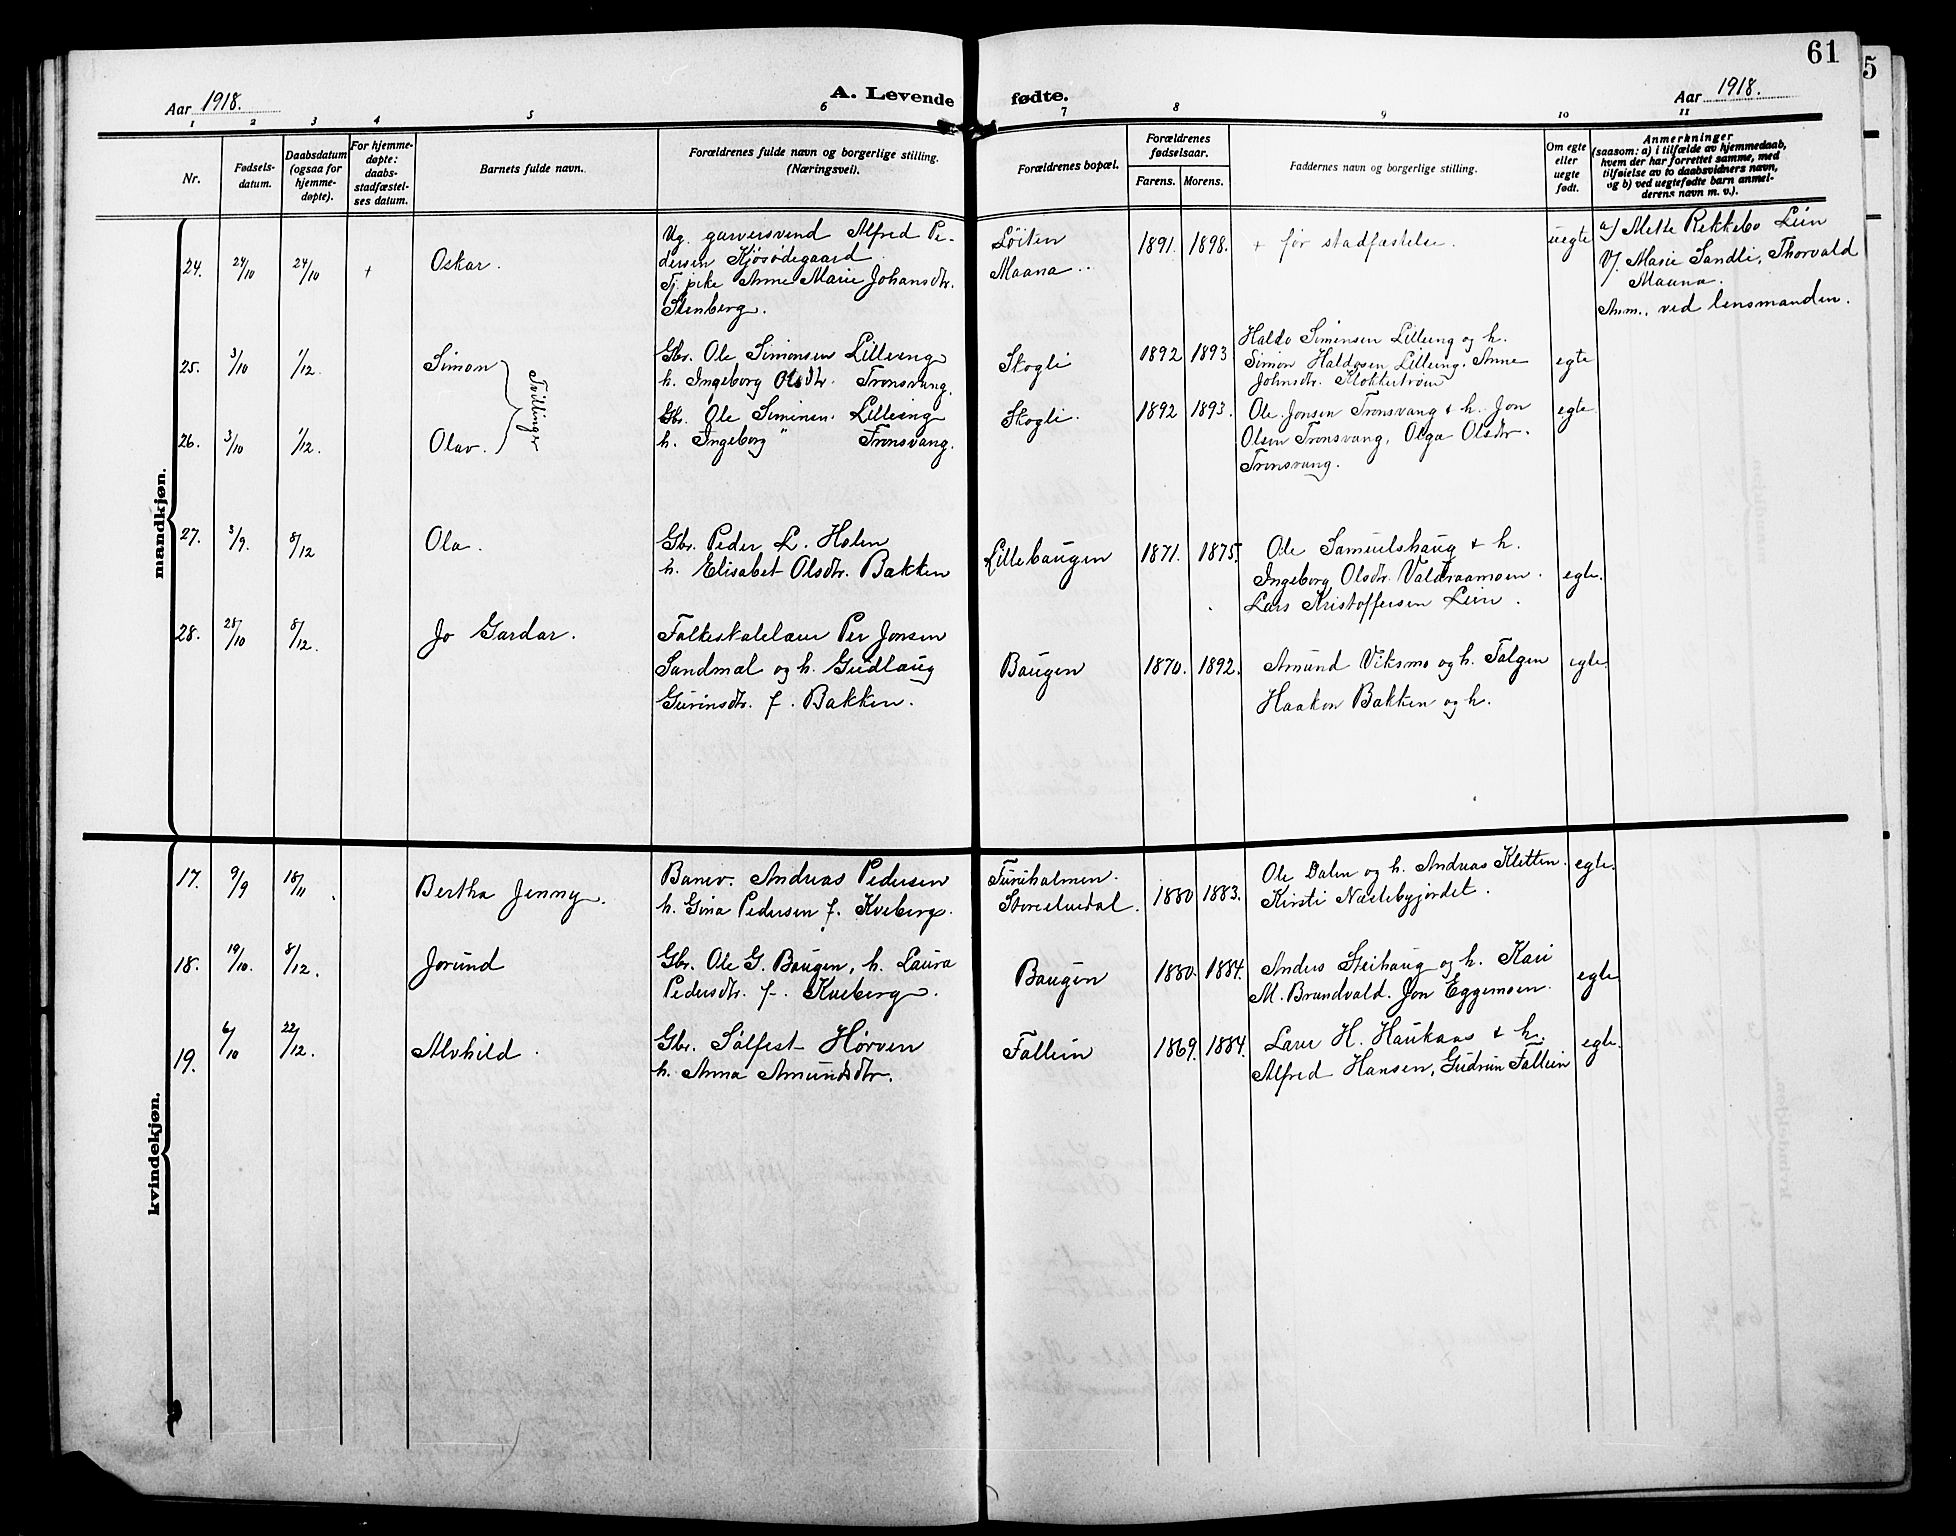 61
5
Aar 1918.
A. Levende fødte.
Aar 1918.
1 2 3 4 5 6 7 8 9 10 11
Nr.
Fødsels-
datum.
Daabsdatum
(ogsaa for
hjemme-
døpte).
For hjemme-
døpte:
daabs-
stadfæstel-
ses datum.
Barnets fulde navn.
Forældrenes fulde navn og borgerlige stilling.
(Næringsvei).
Forældrenes bopæl.
Forældrenes
fødselsaar.
Farens. Morens.
Faddernes navn og borgerlige stilling.
Om egte
eller
uegte
født.
Anmerkninger
(saasom: a) i tilfælde av hjemmedaab,
hvem der har forrettet samme, med
tilføielse av to daabsvidners navn,
og b) ved uegtefødte barn anmel-
derens navn m. v.).
mandkjøn.
24. 24/10 24/10 + Oskar.
Ug. garversvend Alfred Pe-
dersen Kjøsødegaard.
Tj. pike Anne Marie Johansdtr.
Stenberg.
Løiten
Maana
1891. 1898. + før stadfæstelse. uegte
a/ Mette Rekkebo Lien
V/. Marie Sandli, Thorvald
Maana.
Anm., ved lensmanden.
25. 3/10 1/12. Simon
Tvillinger
Gbr. Ole Simonsen Lilleeng
h. Ingeborg Olsdtr. Tronsvang.
Skogli 1892 1893
Haldo Simensen Lilleeng og h.
Simon Haldosen Lilleeng. Anne
Johnsdtr. Klokkerstrøm
egte
26. 3/10 1/12. Olav.
Gbr. Ole Simonsen Lilleeng
h. Ingeborg " Tronsvang.
Skogli. 1892 1893.
Ole Jonsen Tronsvang & h. Jon
Olsen Tronsvang, Olga Olsdtr.
Tronsvang.
egte
27. 3/9. 8/12 Ola.
Gbr. Peder L. Holen
h. Elisabet Olsdtr. Bakken
Lillebaugen 1871. 1875.
Ole Samuelshaug & h.
Ingeborg Olsdtr. Valdraamoen.
Lars Kristoffersen Lien.
egte.
28. 28/10 8/12. Jo Gardar.
Folkeskolelærer Per Jonsen
Sandmæl og h. Gudlaug
Gurinsdtr. f. Bakken.
Baugen 1870. 1892.
Amund Viksmo og h. Tolgen
Haakon Bakken og h.
egte
kvindekjøn.
17. 9/9 18/11 Bertha Jenny.
Banev. Andreas Pedersen
h. Gina Pedersen f. Kveberg.
Furuholmen.
Storelvedal.
1880 1883.
Ole Dalen og h. Andreas Kletten.
Kirsti Næstebyjordet.
egte.
18. 19/10. 8/12. Jorund
Gbr. Ole G. Baugen, h. Laura
Pedersdtr. f. Kveberg.
Baugen 1880. 1884.
Anders Steihaug og h. Kari
M. Brandvald. Jon Eggemoen.
egte
19. 6/10 22/12. Alvhild.
Gbr. Sølfest Horven
h. Anna Amundsdtr.
Fallein 1869. 1884.
Lars H. Haukaas & h.
Alfred Hansen, Gudrun Fallein
egte.